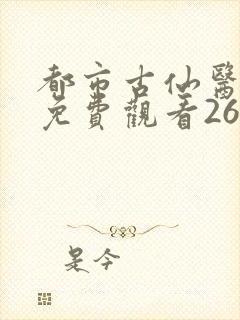 都市古仙醫
免費觀看26
是今